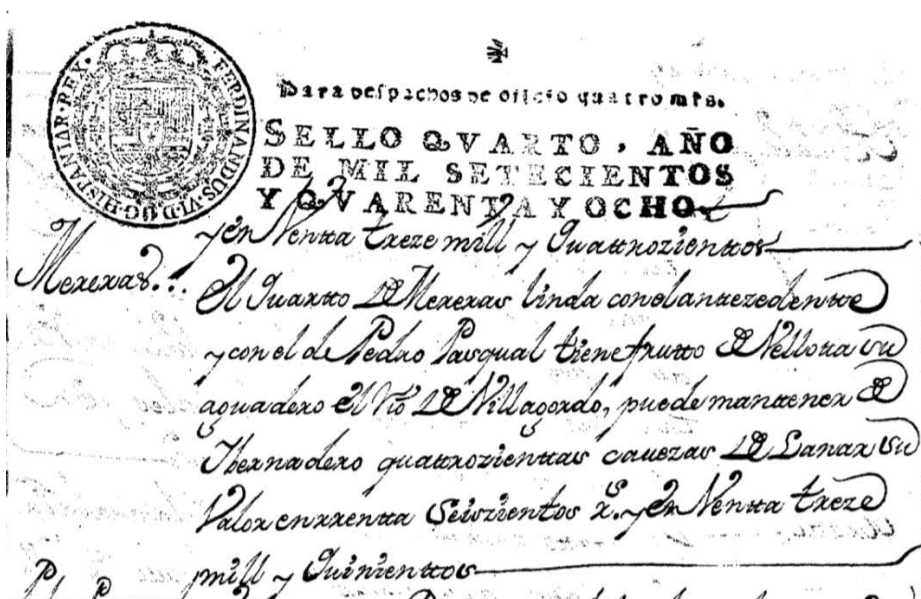 FERDINANDUS·VI·D·G·HISPANIAR·REX·
Para despachos de oficio quatro mrs.
SELLO QVARTO, AÑO
DE MIL SETECIENTOS
Y QVARENTA Y OCHO.
y en Ventta treze mill y Quattrozienttos
Mereras...
El Quartto de Mereras linda con el antezedentte
y con el de Pedro Pasqual tiene frutto de Vellotta su
aguadero el Rio de Villagordo, puede mantener de
Ibernadero quattrozienttas cauezas de Lanar su
Valor en rrentta Seiszientos rs. y en Ventta treze
mill y Quinienttos